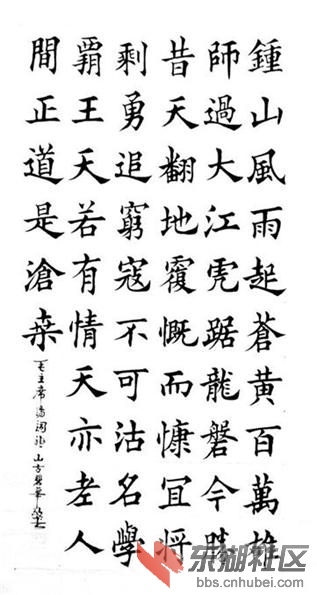 鍾山風雨起蒼黃百萬雄
師過大江虎踞龍磐今勝
昔天翻地覆慨而慷冝將
剩勇追窮寇不可沽名學
覇王天若有情天亦老人
間正道是滄桒
毛主席 山方碧華
东湖社区
bbs.cnhubei.com